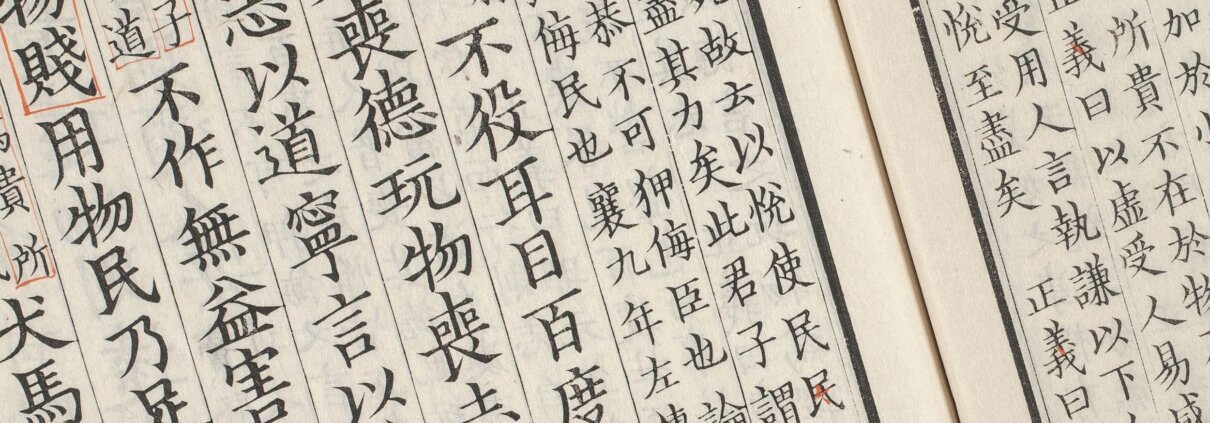 加於小
所貴不在於物
義曰以虛受人易咸
受用人言執謙以下
悅至盡矣 正義曰
故云以悅使民民
盡其力矣此君子謂
恭不可狎侮臣也論
侮民也襄九年左傳
不役耳目百度
喪德玩物喪
志以道寧言以
子
道
不作無益害
物賤用物民乃足
所
貴
犬馬